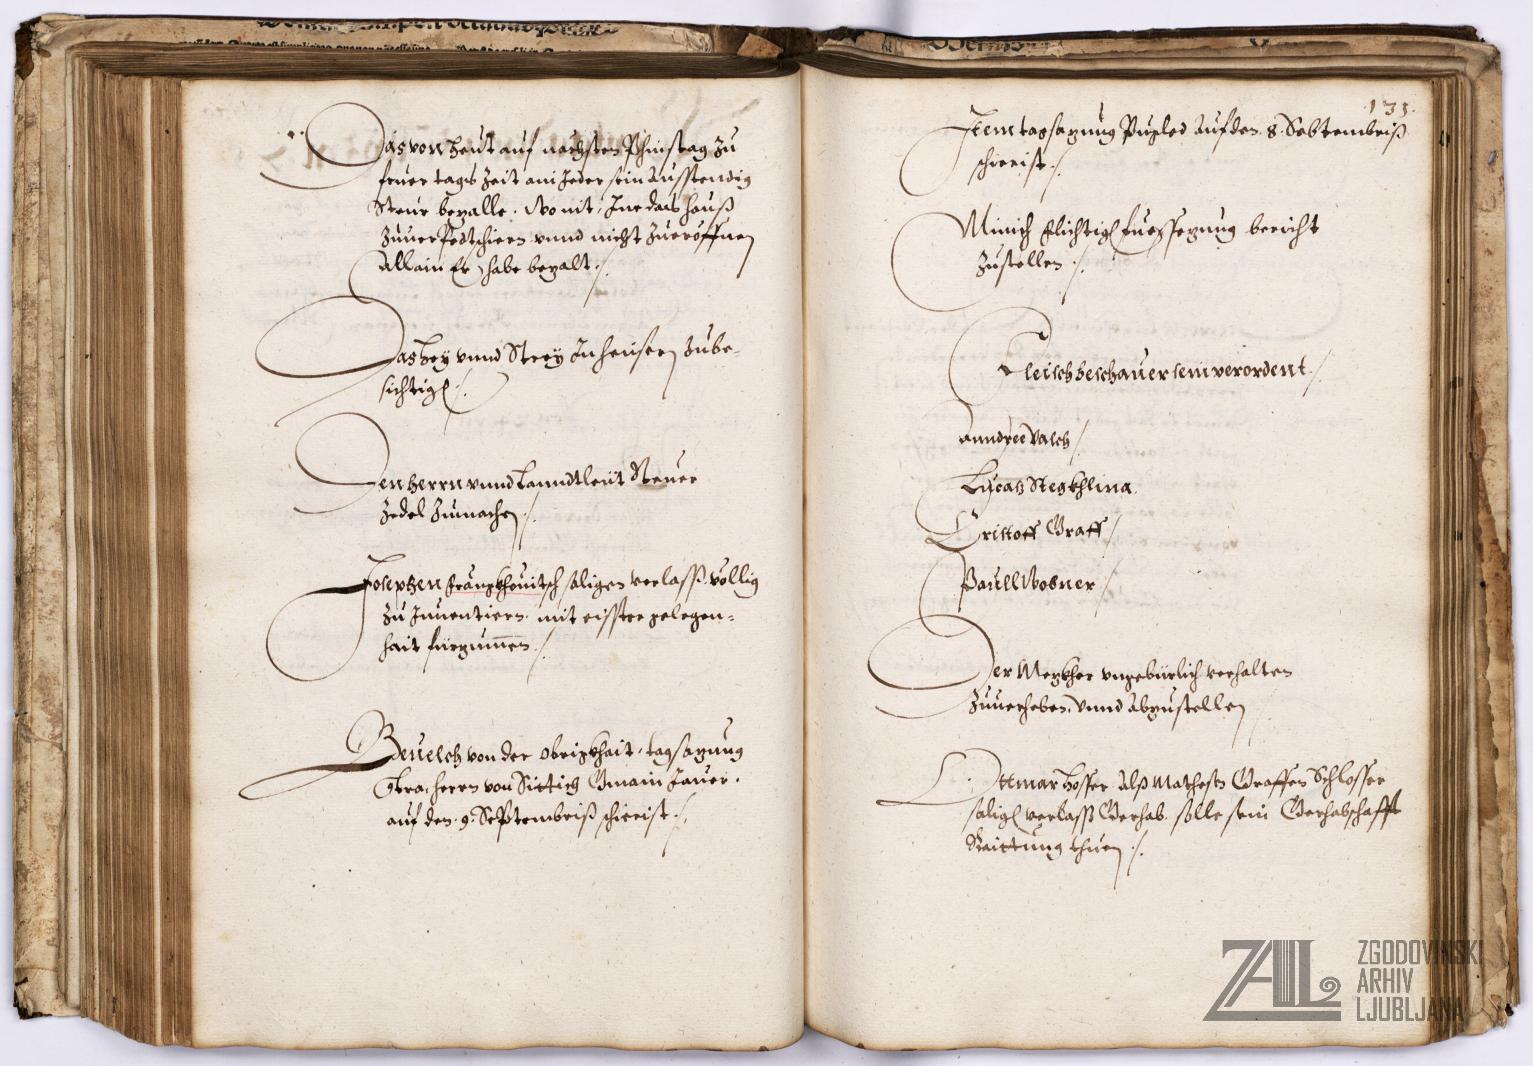 Das von heut auf nachsten Phinstag zu
feuer tags Zeit ain Jeder sein Ausstendig
Steur bezalle. Wo nit, Jme das hauß
Zuuerpedtschiern vnnd nicht Zueröffnen
Allain Er habe bezalt ./.
Das hey vnnd Strey Jn heusern zube-
sichtigen ./.
Den herrn vnnd Lanndtleüt Steuer
Zedel Zumachen ./.
Josephen saligen verlass völlig
Zu Jnuentiern mit eister gelegen-
hait fürzumen ./.
Beuelch von der Obrigkhait, tagsazung
Contra herrn von Sittig Gmain Jauer.
auf den .9. Septembriß schierist ./.
131.
Jtem tagsazung Auf den .8. Sebtembriß
schierist ./.
Münich flichtigen bericht
Zustellen ./.
Fleischbeschauer sein verordent ./
Anndree Valch /
Lucas Stegkhlina
Cristoff Graff /
Paull Wobner /
Der Mezkher vngebürlich verhalten
Zuuerheben vnnd Abzustellen
Ottmar Hoffer Alß Mathesen Graffen Schlosser
saligen verlass Gerhab. solle sein Gerhabschafft
Raittung thuen ./.
ZAL
ZGODOVINSKI
ARHIV
LJUBLJANA